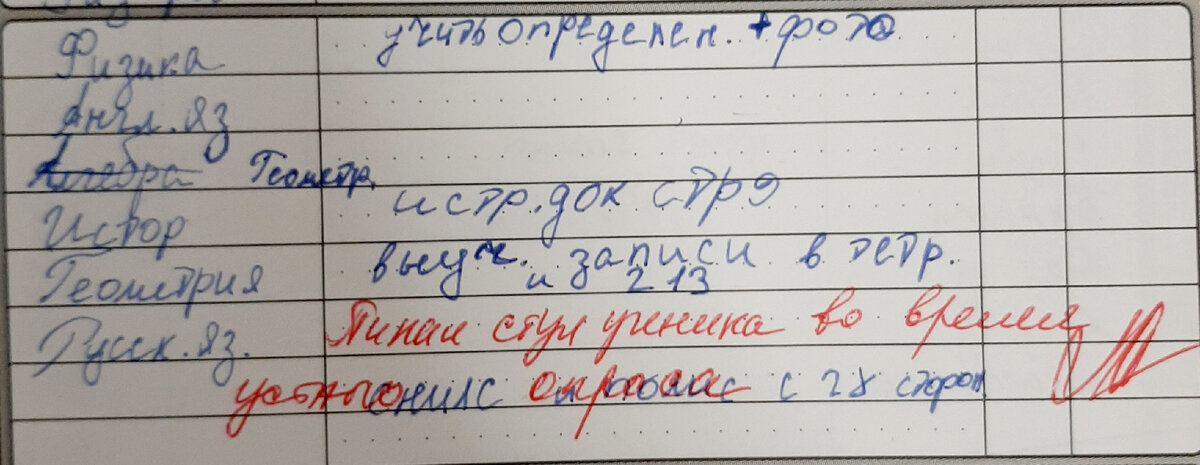 Физика учить определен. + фото
Англ. яз
Алгебра Геометр.
Истор истр. док стр 9
Геометрия выуч. записи в тетр.
и 2 13
Русск. яз. Пинал стул ученика во время
устного опроса с 2х сторон